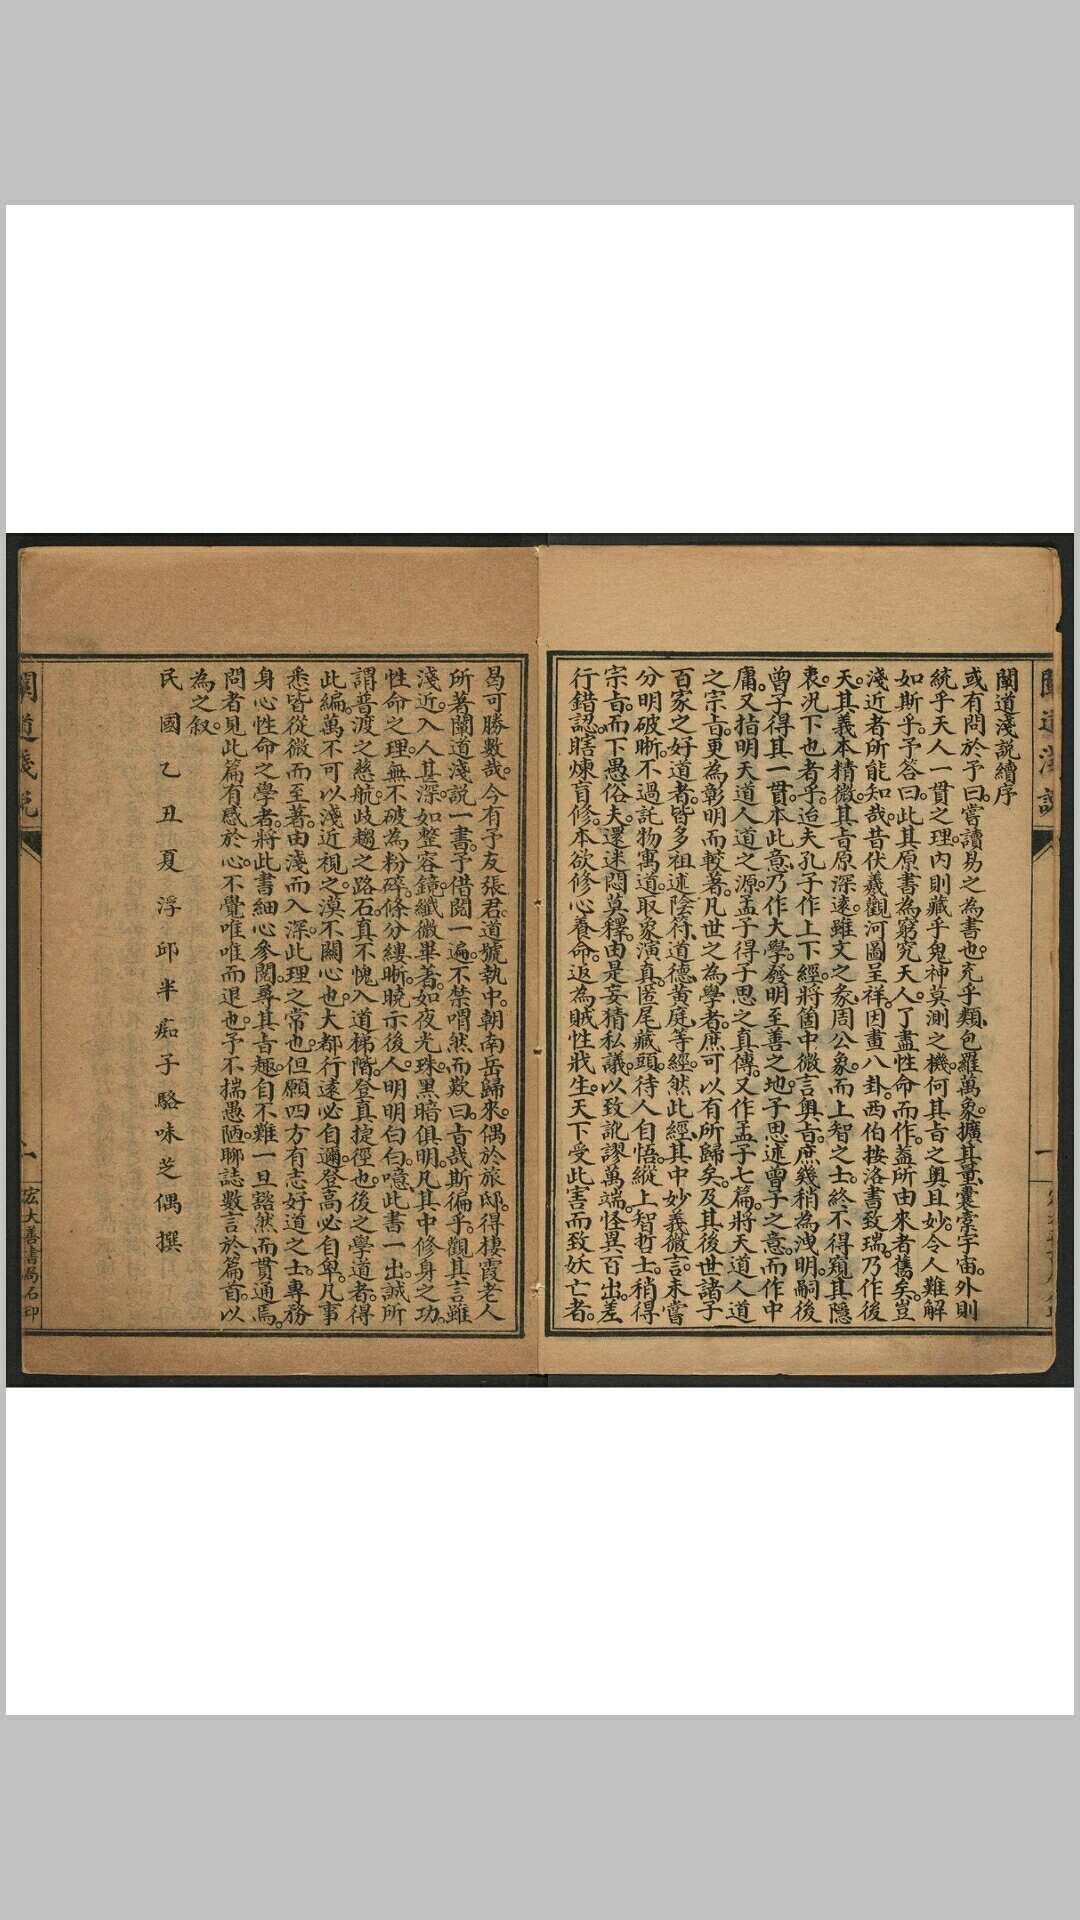 闡道淺說續序
或有問於予曰。嘗讀易之為書也。充乎類。包羅萬象。擴其量。囊橐宇宙。外則
統乎天人一貫之理。內則藏乎鬼神莫測之機。何其旨之奧且妙。令人難解
如斯乎。予答曰。此其原書為窮究天人。了盡性命而作。蓋所由來者舊矣。豈
淺近者所能知哉。昔伏羲觀河圖呈祥。因畫八卦。西伯按洛書致瑞。乃作後
天。其義本精微。其旨原深遠。雖文之彖周公象。而上智之士。終不得窺其隱
衷。況下也者乎。迨夫孔子作上下經。將箇中微言奧旨。庶幾稍為洩明。嗣後
曾子得其一貫。本此意。乃作大學。發明至善之地。子思述曾子之意。而作中
庸。又指明天道人道之源。孟子得子思之真傳。又作孟子七篇。將天道人道
之宗旨。更為彰明而較著。凡世之為學者。庶可以有所歸矣。及其後世諸子
百家之好道者。皆多祖述陰符、道德、黃庭、等經。然此經、其中妙義微言。未嘗
分明破晰。不過託物寓道。取象演真。匿尾藏頭。待人自悟。縱上智哲士。稍得
宗旨。而下愚俗夫。還迷悶莫釋。由是妄猜私議。以致訛謬萬端。怪異百出。差
行錯認。瞎煉盲修。本欲修心養命。返為賊性戕生。天下受此害而致妖亡者。
曷可勝數哉。今有予友張君。道號執中。朝南岳歸來。偶於旅邸。得棲霞老人
所著闡道淺說一書。予借閱一遍。不禁喟然而歎曰。旨哉斯徧乎。觀其言雖
淺近。入人甚深。如整容鏡。纖微畢著。如夜光珠。黑暗俱明。凡其中修身之功。
性命之理。無不破為粉碎。條分縷晰。曉示後人。明明白白。噫、此書一出。誠所
謂普渡之慈航。歧趨之路石。真不愧入道梯階。登真捷徑也。後之學道者。得
此編。萬不可以淺近視之。漠不關心也。大都行遠必自邇。登高必自卑。凡事
悉皆從微而至著。由淺而入深。此理之常也。但願四方有志好道之士。專務
身心性命之學者。將此書細心參閱。尋其旨趣。自不難一旦豁然而貫通焉。
問者見此篇有感於心。不覺唯唯而退也。予不揣愚陋。聊誌數言於篇首。以
為之叙。
民國乙丑夏浮邱半痴子駱味芝偶撰
闡道淺說
宏大善書局石印